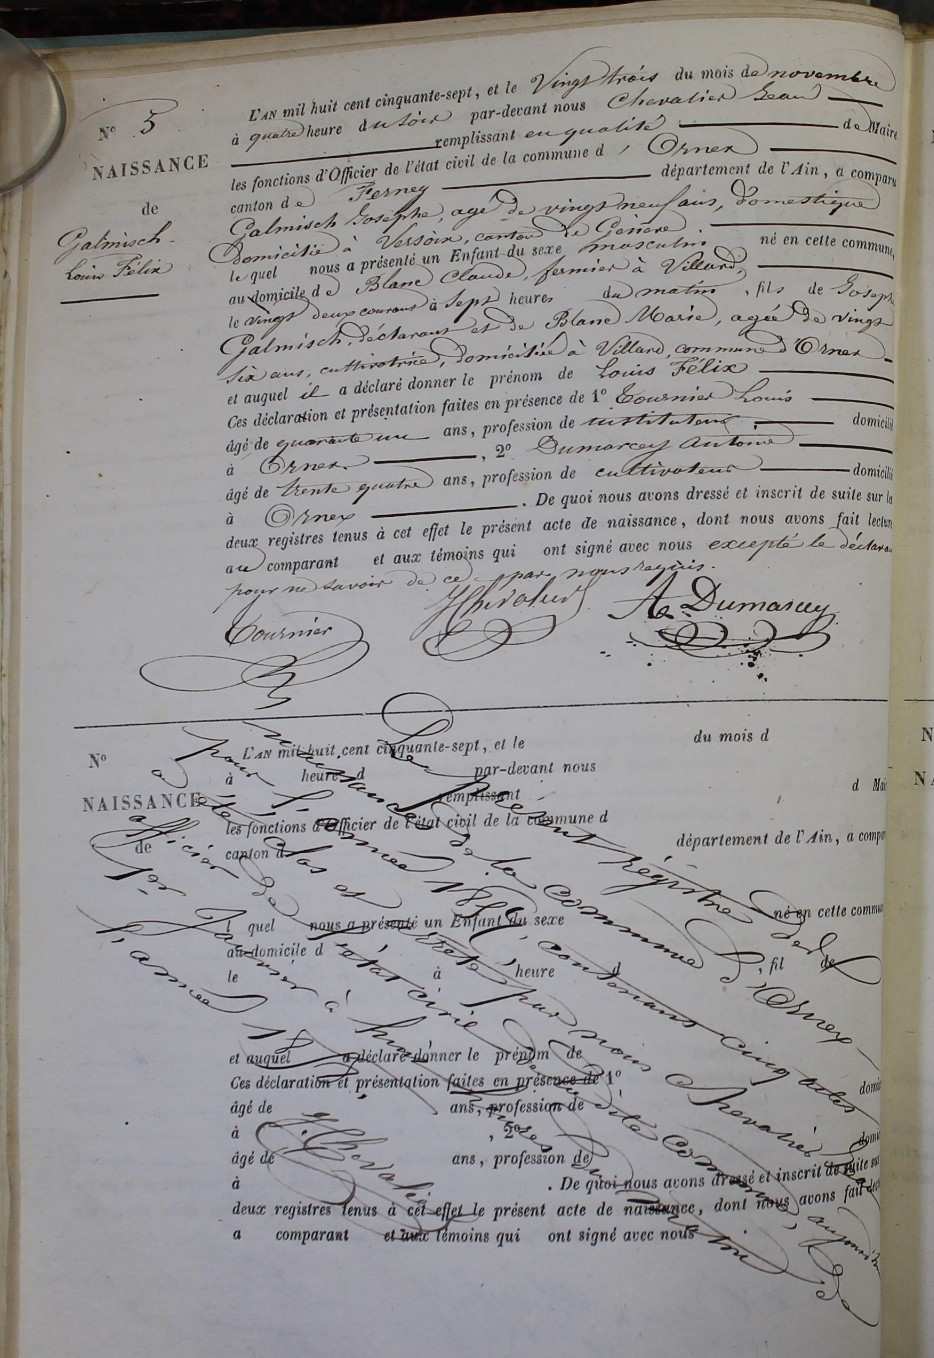 N° 5
NAISSANCE
de
Galmisch
Louis Félix
L'AN mil huit cent cinquante-sept, et le Vingt trois du mois de novembre
à quatre heure du soir par-devant nous Chevalier Jean
remplissant en qualité de Maire
les fonctions d'Officier de l'état civil de la commune d'Ornex
canton de Ferney département de l'Ain, a comparu
Galmisch Josephe, agé de vingt neuf ans, domestique
domicilié à Versoix, canton de Genève
lequel nous a présenté un Enfant du sexe masculin né en cette commune,
au domicile de Blanc Claude, fermier à Villard,
le vingt deux courant à sept heures du matin, fils de Joseph
Galmisch, déclarant et de Blanc Marie, agée de vingt
six ans, cultivatrice, domiciliée à Villard, commune d'Ornex
et auquel il a déclaré donner le prénom de Louis Félix
Ces déclaration et présentation faites en présence de 1° Tournier Louis
âgé de quarante un ans, profession de instituteur domicilié
à Ornex, 2° Dumarcey Antoine
âgé de trente quatre ans, profession de cultivateur domicilié
à Ornex. De quoi nous avons dressé et inscrit de suite sur la
deux registres tenus à cet effet le présent acte de naissance, dont nous avons fait lecture
au comparant et aux témoins qui ont signé avec nous excepté le déclarant
pour ne savoir de ce par nous requis.
Tournier
J Chevalier
A. Dumarcey
N°
NAISSANCE
de
L'AN mil huit cent cinquante-sept, et le du mois d
à heure d par-devant nous
remplissant d Mai
les fonctions d'Officier de l'état civil de la commune d
canton d département de l'Ain, a compa
l quel nous a présenté un Enfant du sexe né en cette commu
au domicile d
le à heure d , fil de
et auquel a déclaré donner le prénom de
Ces déclaration et présentation faites en présence de 1°
âgé de ans, profession de domi
à , 2°
âgé de ans, profession de domi
à . De quoi nous avons dressé et inscrit de suite sur
deux registres tenus à cet effet le présent acte de naissance, dont nous avons fait lect
a comparant et aux témoins qui ont signé avec nous
Le présent régistre des
naissances de la commune d'Ornex
pour l'année 1857, contenant cinq actes
a été clos et arrêté par nous Chevalier
officier de l'état civil de la dite commune, aujourd'hui
1er Janvier à huit heures du matin de
l'année 1858.
J. Chevalier
N
NA